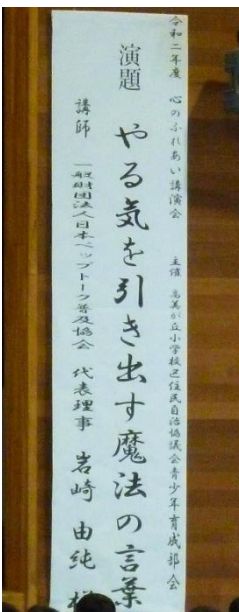 令和二年度 心のふれあい講演会 主催 高美が丘小学校区住民自治協議会青少年育成部会
演題 やる気を引き出す魔法の言葉
講師 一般財団法人日本ペップトーク普及協会 代表理事 岩崎 由純 様